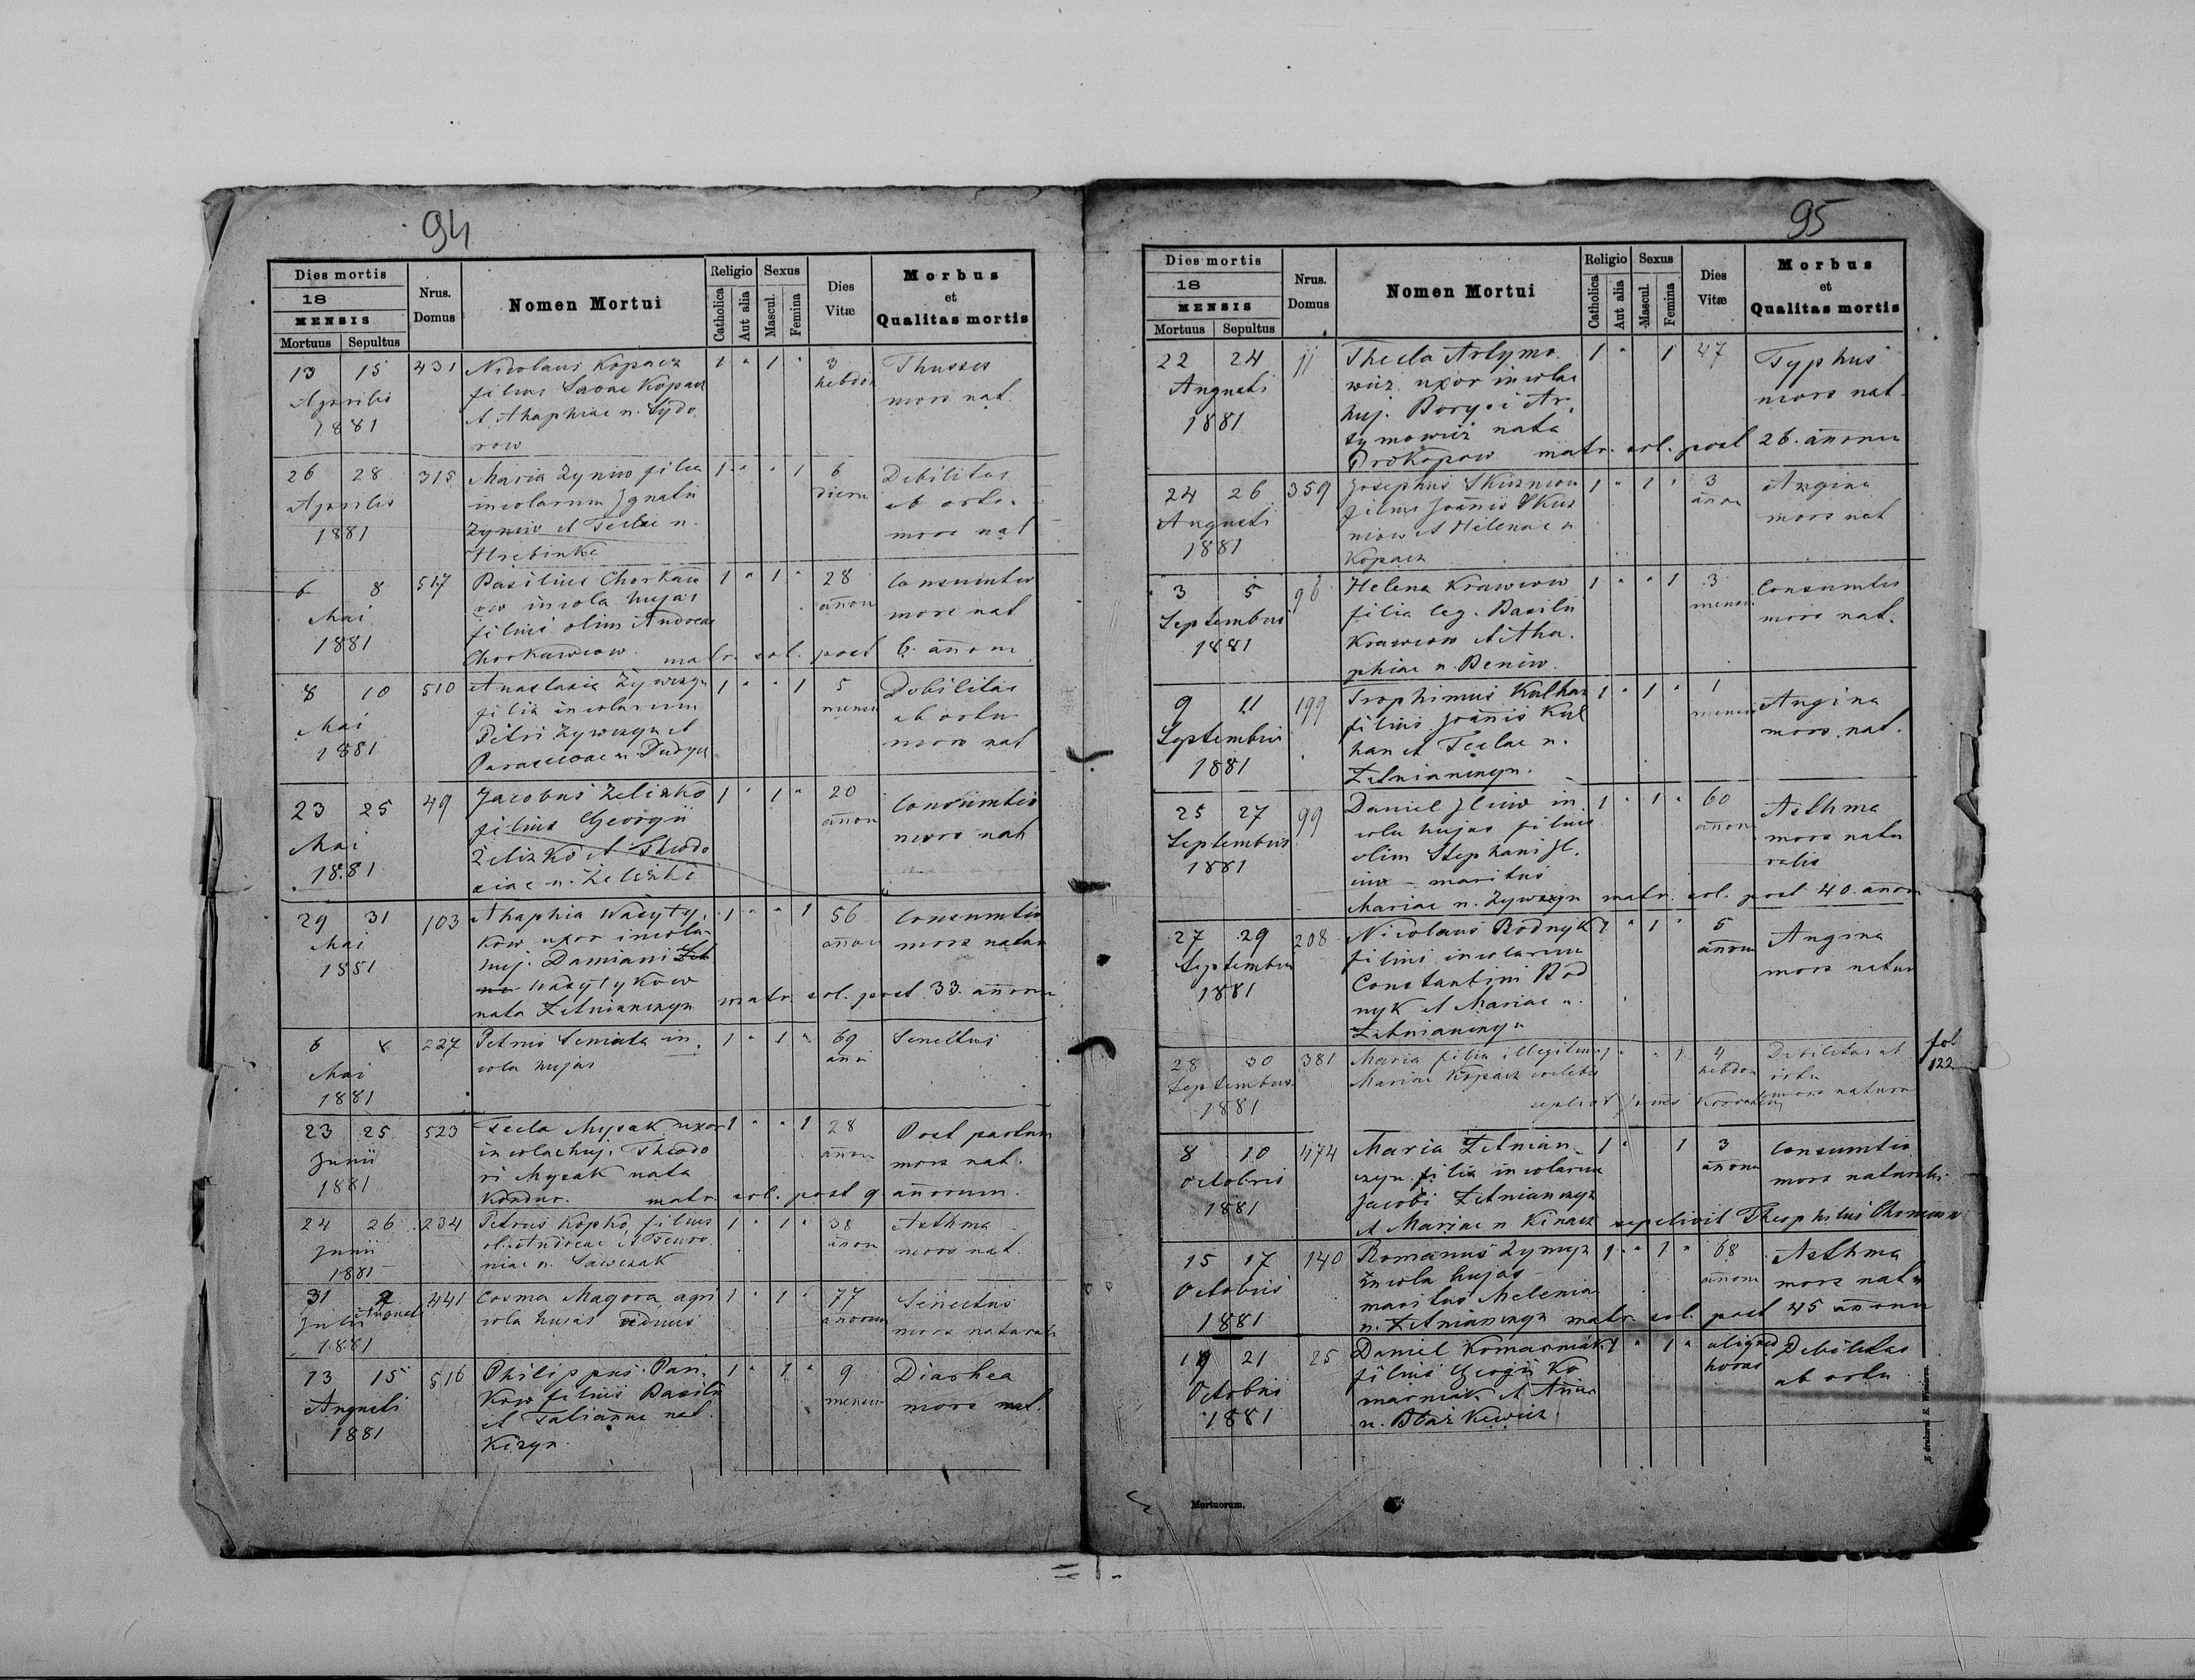 94
Dies mortis
18
MENSIS
Mortuus Sepultus
Nrus. Domus
Nomen Mortui
Religio
Catholica Aut alia
Sexus
Mascul. Femina
Dies Vitæ
Morbus
et
Qualitas mortis
13 15 431 Nicolaus Kopacz 1 " 1 " 3 Thusses
Aprilis filius Savae Kopacz hebdom mors nat.
1881 et Ahaphiae n. Sydo
row
26 28 315 Maria Zyniw filia 1 " " 1 6 Debilitas
Aprilis incolarum Ignatii dierum ab ortu
1881 Zyniw et Teclae n. mors nat
Hrebinka
6 8 517 Basilius Chorkaw 1 " 1 " 28 Consumtio
Mai ow incola hujas annor mors nat
1881 filius olim Andreae
Chorkawcow. matr. sol. post 6. annorum
8 10 510 Anastasia Zywczyn 1 " " 1 5 Debilitas
Mai filia incolarum mensu ab ortu
1881 Petri Zywczyn et mors nat
Parascevae n. Dudycz
23 25 49 Jacobus Zelizko 1 " 1 " 20 Consumtio
Mai filius Georgii annor mors nat
1881 Zelizko et Theodo
siae n. Zelizko
29 31 103 Ahaphia Wasyty, 1 " " 1 56 Consumtio
Mai kow uxor incolae annor mors natur
1881 huj. Damiani
Wasytykow
nata Letnianczyn matr. sol. post 33. annorum
6 8 227 Petrus Seniuta in, 1 " 1 " 69 Senectus
Mai cola hujas anni
1881
23 25 523 Tecla Mysak uxor 1 " " 1 28 Post partum
Junii incolae huj. Theodo annor mors nat.
1881 ri Mysak nata
Kondur. matr. sol. post 9. annorum.
24 26 234 Petrus Kopko filius 1 " 1 " 38 Asthma
Junii ol. Andreae et Feuro annor mors nat.
1881 niae n. Sawczak
31 2 441 Cosma Magora agri 1 " 1 " 77 Senectus
Julii Augusti cola hujas viduus annorum mors naturalis
1881
13 15 516 Philippus Pan, 1 " 1 " 9 Diarhea
Augusti kow filius Basilii mensu mors nat.
1881 et Tatianae nat.
Kizyn.
95
Dies mortis
18
MENSIS
Mortuus Sepultus
Nrus. Domus
Nomen Mortui
Religio
Catholica Aut alia
Sexus
Mascul. Femina
Dies Vitæ
Morbus
et
Qualitas mortis
22 24 11 Thecla Artymo 1 " 1 47 Typhus
Augusti wicz uxor incolae mors nat.
1881 huj. Borysi Ar,
tymowicz nata
Prokopow matr. sol. post 26. annorum
24 26 359 Josephus Skuzniow 1 " 1 " 3 Angina
Augusti filius Joannis Skuz annor mors nat
1881 niow et Helenae n
Kopacz
3 5 96 Helena Krawcow 1 " " 1 3 Consumtio
Septembris filia leg. Basilii mensu mors nat.
1881 Krawcow et Aha.
phiae n. Deniw.
9 11 199 Trophimus Kulhan 1 " 1 " 1 Angina
Septembris filius Joannis Kul mensis mors nat.
1881 han et Teclae n.
Letnianczyn.
25 27 99 Daniel Iliiw in 1 " 1 " 60 Asthma
Septembris cola hujas filius annor mors natu
1881 olim Stephani Il, ralis
iiw – maritus
Mariae n. Zywczyn matr. sol. post 40. annor
27 29 208 Nicolaus Bodnyk 1 " 1 " 5 Angina
Septembris filius incolarum annorum mors natur
1881 Constantini Bod
nyk et Mariae n.
Letnianczyn
28 30 381 Maria filia illegitima 1 " " 1 4 Debilitas ab fol
Septembris Mariae Kopacz coelebis hebdom ortu 122
1881 mors natura
sepelivit Joannes
8 10 474 Maria Letnian 1 " 1 3 Consumtio
Octobris czyn filia incolarum annorum mors naturalis
1881 Jacobi Letnianczyn
et Mariae n Kinacz sepelivit Theophilus
15 17 140 Romanus Zymyn 1 " 1 " 68 Asthma
Octobris Incola hujas annorum mors natu
1881 maritus Melenia
n. Letnianczyn matr. sol. post 45 annorum
19 21 25 Daniel Komarniak 1 " 1 " aliquod Debilitas
Octobris filius Georgii Ko horas ab ortu
1881 marniak et Anna
n. Blazkewicz
Mortuorum.
Z drukarni E. Winiarza.